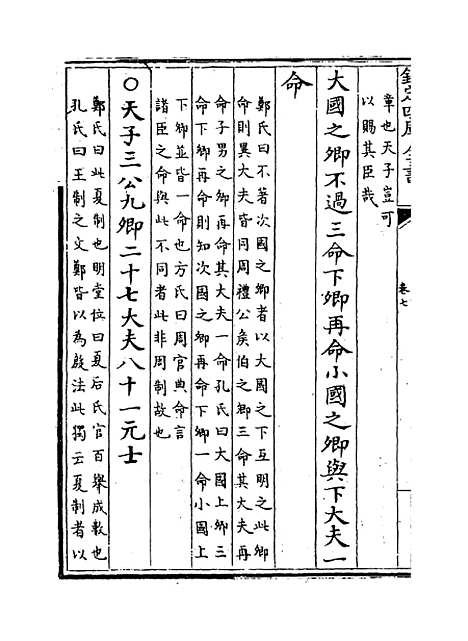 欽定四庫全書
卷七
章也天子豈可
以賜其臣哉
大國之卿不過三命下卿再命小國之卿與下大夫一
命
鄭氏曰不著次國之卿者以大國之下互明之此卿
命則異大夫皆同周禮公矦伯之卿三命其大夫再
命子男之卿再命其大夫一命孔氏曰大國上卿三
命下卿再命則知次國之卿再命下卿一命小國上
下卿並皆一命也方氏曰周官典命言
諸臣之命與此不同者此非周制故也
○天子三公九卿二十七大夫八十一元士
鄭氏曰此夏制也明堂位曰夏后氏官百舉成數也
孔氏曰王制之文鄭皆以為殷法此獨云夏制者以